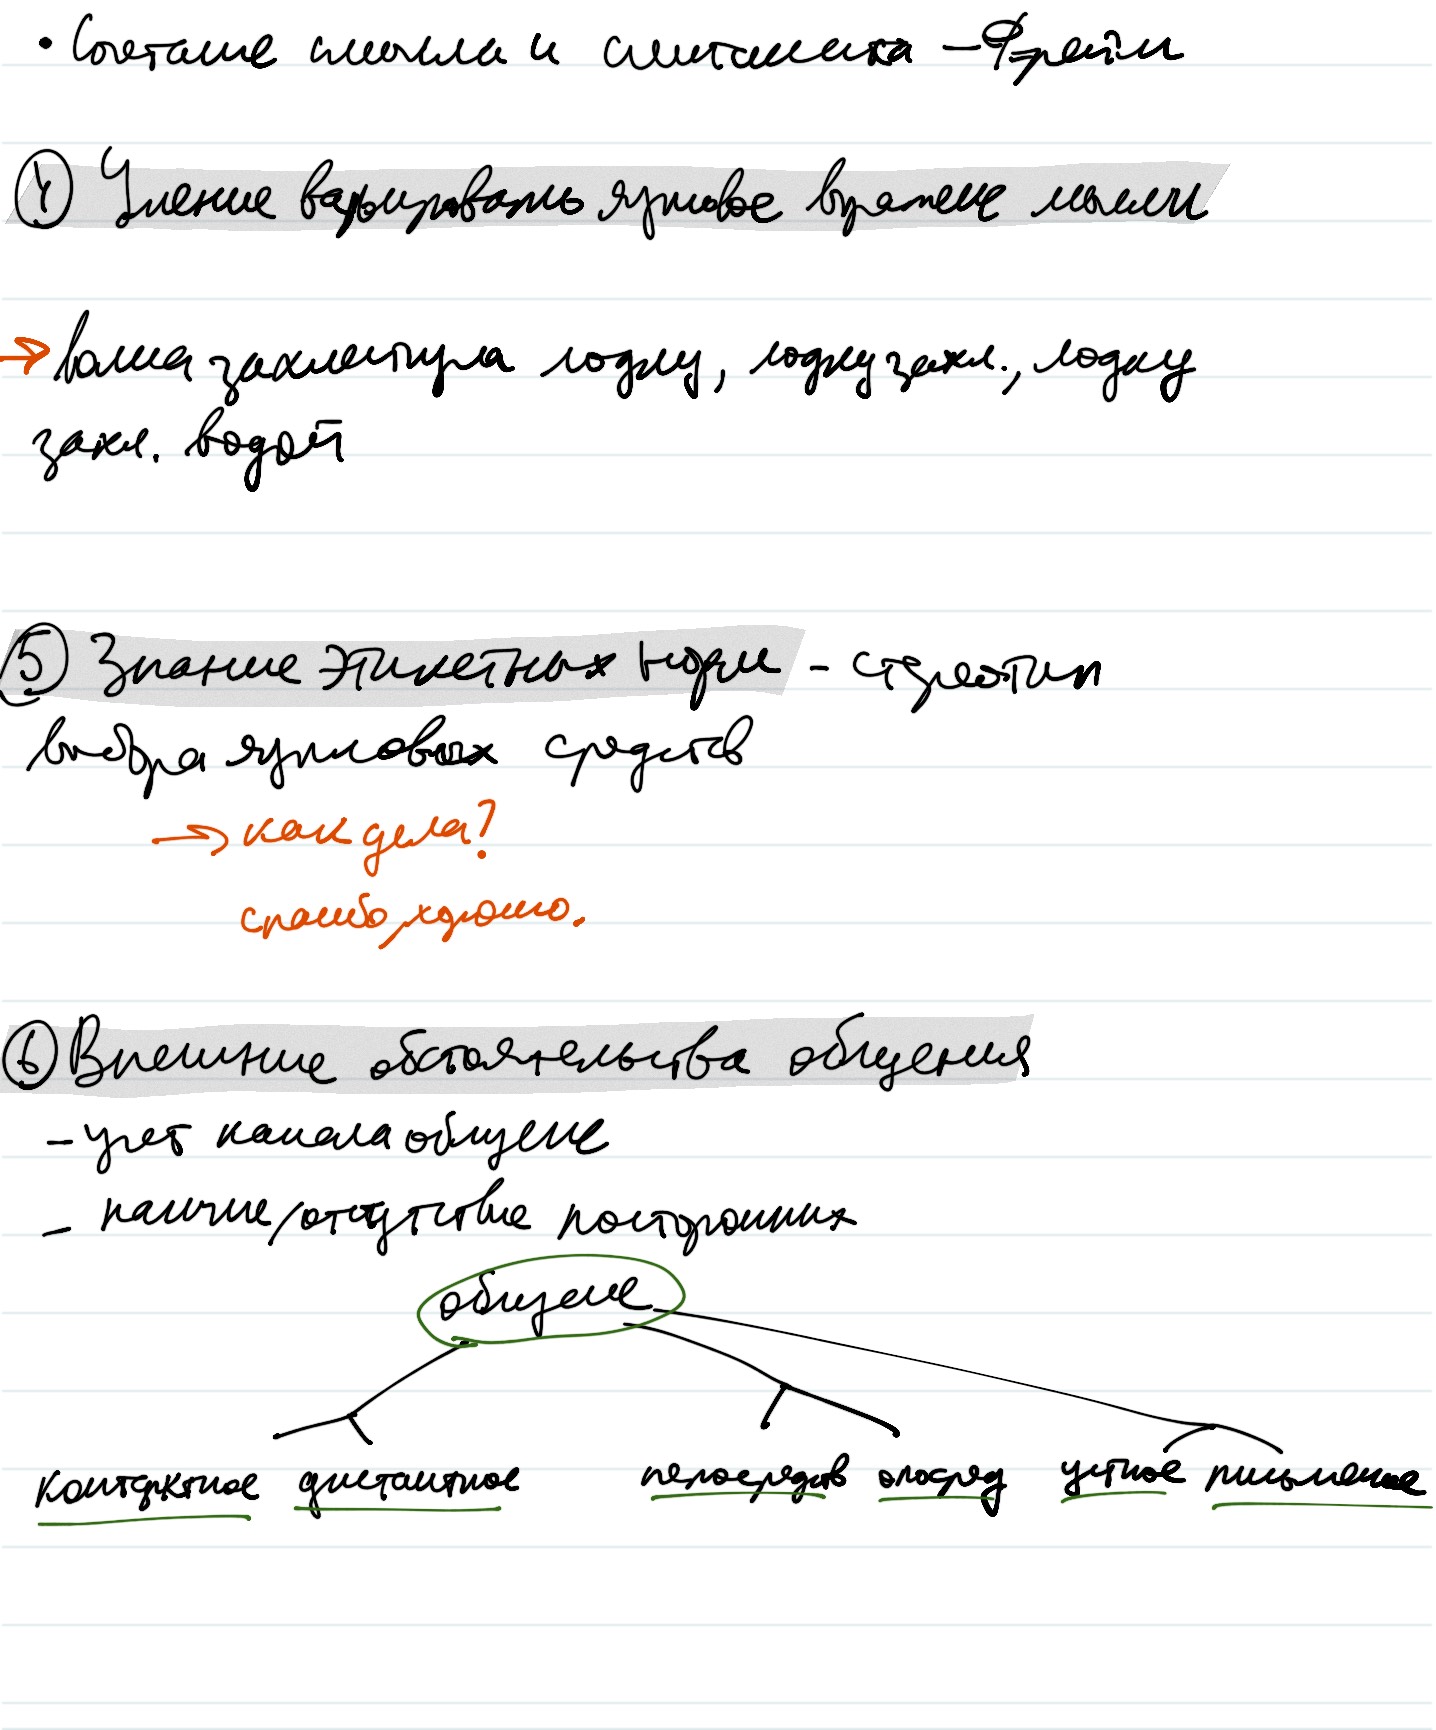 • Сочетание смысла и синтаксиса – Фрейм
④ Умение варьировать языковое выражение мысли
→ волна захлестнула лодку, лодку захл., лодку
захл. водой
⑤ Знание этикетных норм – стереотип
выбора языковых средств
→ как дела?
спасибо, хорошо.
⑥ Внешние обстоятельства общения
– учет канала общение
– наличие/отсутствие посторонних
общение
контактное дистантное непосредств опосред устное письменное